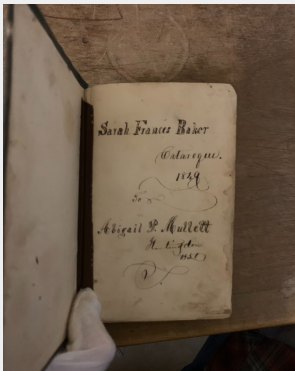 Sarah Frances Baker
Catalogue.
1849
To
Abigail P. Mullett
1851